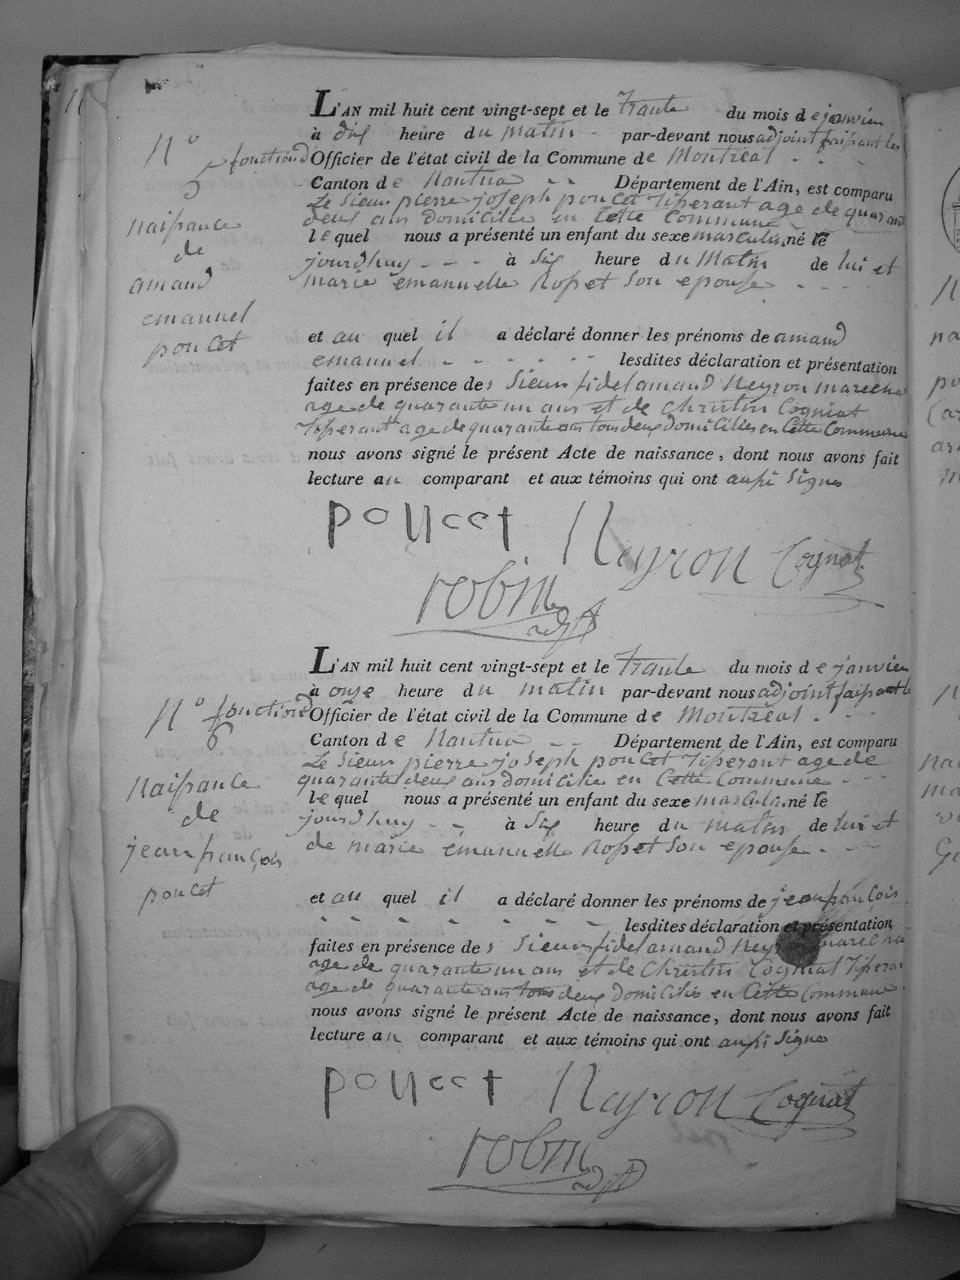 L'AN mil huit cent vingt-sept et le trante du mois de janvier
N° 5
à dix heure du matin - par-devant nous adjoint faisant les
fonctions d Officier de l'état civil de la Commune de Montreal - -
Canton de Nantua - - Département de l'Ain, est comparu
Le sieur pierre joseph poncet tisserant age de quarante
deux ans domicilie en Cette Commune
naissance
de
amand
emanuel
poncet
le quel nous a présenté un enfant du sexe masculin né le
jourdhuy - - - à six heure du matin de lui et
marie emanuelle Rosset son epouse - - - -
et au quel il a déclaré donner les prénoms de amand
emanuel - - - - - - lesdites déclaration et présentation
faites en présence des sieurs fidel amand Neyron marechal
age de quarante un ans et de Christin Cogniat
tisserant age de quarante ans tous deux domicilies en Cette Commune
nous avons signé le présent Acte de naissance, dont nous avons fait
lecture au comparant et aux témoins qui ont aussi signes
poncet Neyron Cogniat
robin adjt
L'AN mil huit cent vingt-sept et le trante du mois de janvier
N° 6
à onze heure du matin par-devant nous adjoint faisant le
fonctions d Officier de l'état civil de la Commune de Montreal - - -
Canton de Nantua - - Département de l'Ain, est comparu
Le sieur pierre joseph poncet tisserant age de
quarante deux ans domicilie en Cette Commune - - -
naissance
de
jean françois
poncet
le quel nous a présenté un enfant du sexe masculin né le
jourdhuy - - à six heure du matin de lui et
de marie emanuelle Rosset son epouse - - -
et au quel il a déclaré donner les prénoms de jean françois
- - - - - - - lesdites déclaration et présentation
faites en présence des sieurs fidel amand
age de quarante un ans et de Christin Cogniat
age de quarante ans tous deux domicilies en Cette Commune
nous avons signé le présent Acte de naissance, dont nous avons fait
lecture au comparant et aux témoins qui ont aussi signes
poncet Neyron Cogniat
robin adjt